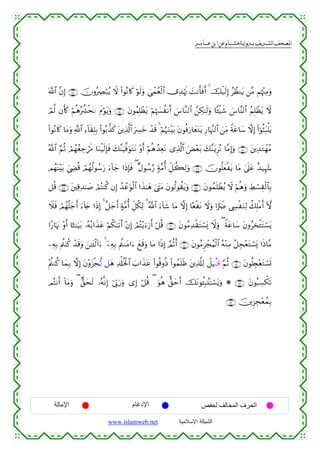 المصحف الشريف برواية هشام عن ابن عامر
وَمِنْهُم مَّن يَنظُرُ إِلَيْكَ أَفَأَنتَ تَهْدِى ٱلْعُمْىَ وَلَوْ كَانُوا۟ لَا يُبْصِرُونَ إِنَّ ٱللَّهَ
لَا يَظْلِمُ ٱلنَّاسَ شَيْـًٔا وَلَٰكِنَّ ٱلنَّاسَ أَنفُسَهُمْ يَظْلِمُونَ وَيَوْمَ نَحْشُرُهُمْ كَأَن لَّمْ
يَلْبَثُوٓا۟ إِلَّا سَاعَةً مِّنَ ٱلنَّهَارِ يَتَعَارَفُونَ بَيْنَهُمْ ۚ قَدْ خَسِرَ ٱلَّذِينَ كَذَّبُوا۟ بِلِقَآءِ ٱللَّهِ وَمَا كَانُوا۟
مُهْتَدِينَ وَإِمَّا نُرِيَنَّكَ بَعْضَ ٱلَّذِى نَعِدُهُمْ أَوْ نَتَوَفَّيَنَّكَ فَإِلَيْنَا مَرْجِعُهُمْ ثُمَّ ٱللَّهُ
شَهِيدٌ عَلَىٰ مَا يَفْعَلُونَ وَلِكُلِّ أُمَّةٍ رَّسُولٌ ۖ فَإِذَا جَآءَ رَسُولُهُمْ قُضِىَ بَيْنَهُم
بِٱلْقِسْطِ وَهُمْ لَا يُظْلَمُونَ وَيَقُولُونَ مَتَىٰ هَٰذَا ٱلْوَعْدُ إِن كُنتُمْ صَٰدِقِينَ قُل
لَّآ أَمْلِكُ لِنَفْسِى ضَرًّا وَلَا نَفْعًا إِلَّا مَا شَآءَ ٱللَّهُ ۗ لِكُلِّ أُمَّةٍ أَجَلٌ ۚ إِذَا جَآءَ أَجَلُهُمْ فَلَا
يَسْتَـْٔخِرُونَ سَاعَةً ۖ وَلَا يَسْتَقْدِمُونَ قُلْ أَرَءَيْتُمْ إِنْ أَتَىٰكُمْ عَذَابُهُۥ بَيَٰتًا أَوْ نَهَارًا
مَّاذَا يَسْتَعْجِلُ مِنْهُ ٱلْمُجْرِمُونَ أَثُمَّ إِذَا مَا وَقَعَ ءَامَنتُم بِهِۦٓ ۚ ءَآلْـَٰٔنَ وَقَدْ كُنتُم بِهِۦ
تَسْتَعْجِلُونَ ثُمَّ قِيلَ لِلَّذِينَ ظَلَمُوا۟ ذُوقُوا۟ عَذَابَ ٱلْخُلْدِ هَلْ تُجْزَوْنَ إِلَّا بِمَا كُنتُمْ
تَكْسِبُونَ ۞ وَيَسْتَنۢبِـُٔونَكَ أَحَقٌّ هُوَ ۖ قُلْ إِى وَرَبِّىٓ إِنَّهُۥ لَحَقٌّ ۖ وَمَآ أَنتُم
بِمُعْجِزِينَ
الحرف المخالف لحفص الإدغام الإمالة
الشبكة الإسلامية www.islamweb.net